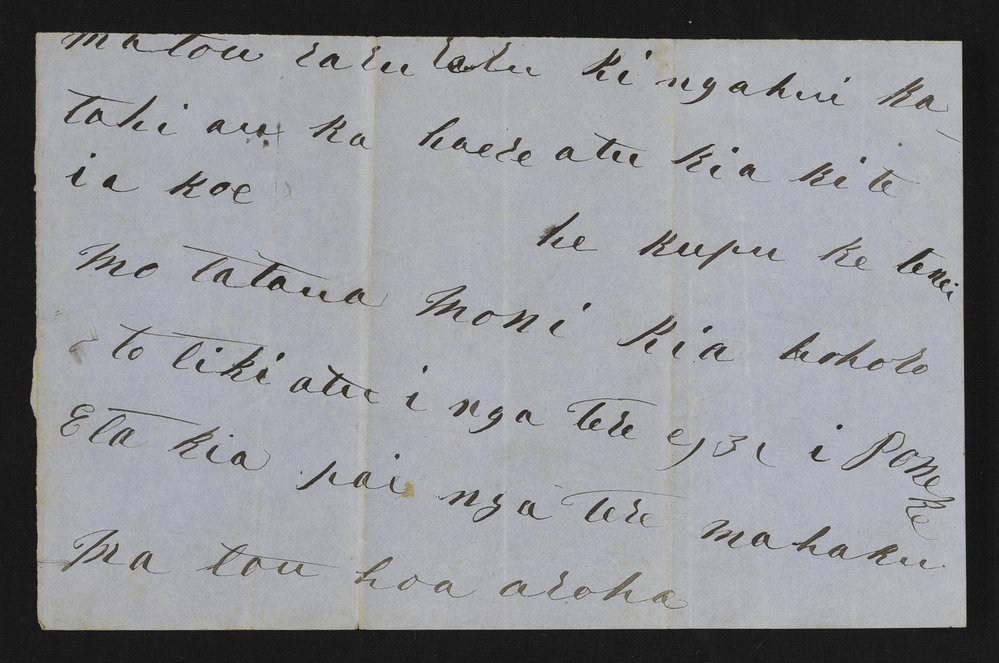 matou raru katu ki ngahui ka
tahi au ka haere atu kia kite
ia koe
he kupu ke tenei
Mo Tataua Moni kia hohoro
to tiki atu i nga tere i Poneke
Eta kia pai nga tere mahaku
Ma tou hoa aroha